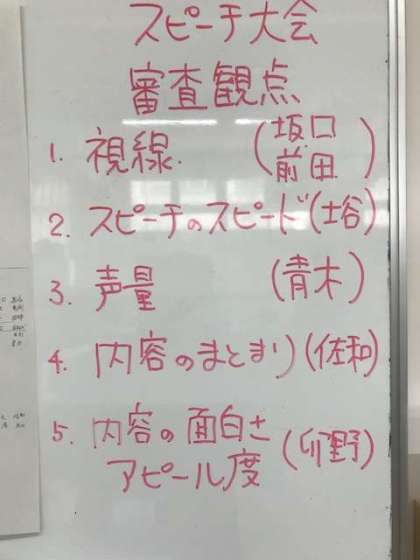 スピーチ大会
審査観点
1. 視線. (坂口
前田)
2. スピーチのスピード(土谷)
3. 声量 (青木)
4. 内容のまとまり(佐和)
5. 内容の面白さ
アピール度 (卯野)